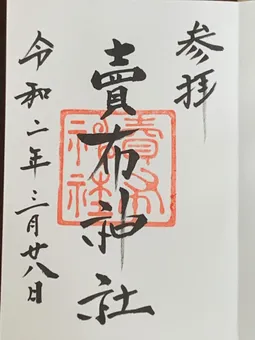 参拝
賣布神社
令和二年三月廿八日
賣布神社